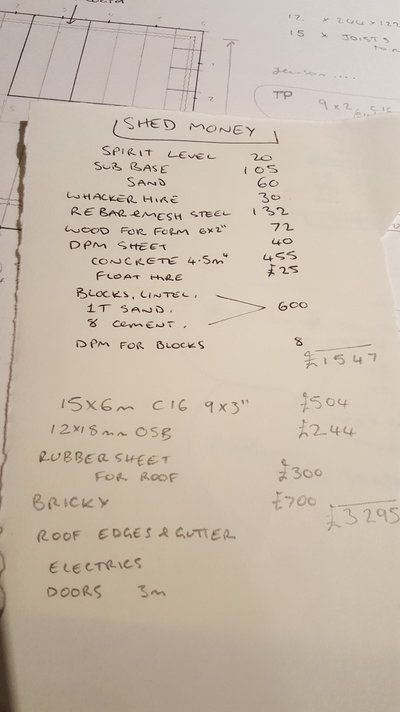 12. x 244 x 122
15 x JOISTS
TP 9x2 C16
SHED MONEY
SPIRIT LEVEL 20
SUB BASE 105
SAND 60
WHACKER HIRE 30
REBAR & MESH STEEL 132
WOOD FOR FORM 6x2" 72
DPM SHEET 40
CONCRETE 4.5m" 455
FLOAT HIRE £25
BLOCKS, LINTEL,
1T SAND, 600
8 CEMENT.
DPM FOR BLOCKS 8
£1547
15x6m C16 9x3" £504
12x18mm OSB £244
RUBBER SHEET
FOR ROOF £300
BRICKY £700
£3295
ROOF EDGES & GUTTER
ELECTRICS
DOORS 3m